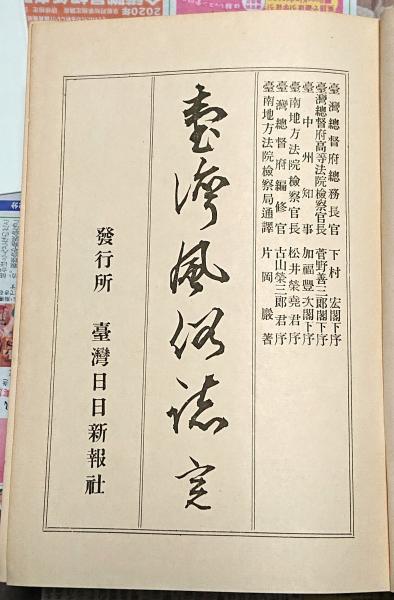 臺灣總督府總務長官　下村　宏閣下序
臺灣總督府高等法院檢察官長　菅野善三郎閣下序
臺中州知事　加福豐次閣下序
臺南地方法院檢察官長　松井榮堯君序
臺灣總督府編修官　古山榮三郎君序
臺南地方法院檢察局通譯　片岡巖著
臺灣風俗誌 完
發行所　臺灣日日新報社
2020年